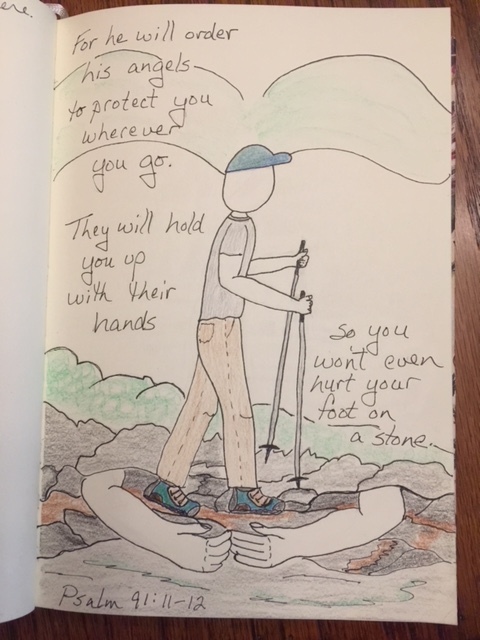 ere.
For he will order
his angels
to protect you
wherever
you go.
They will hold
you up
with their
hands
so you
won't even
hurt your
foot on
a stone.
Psalm 91:11-12